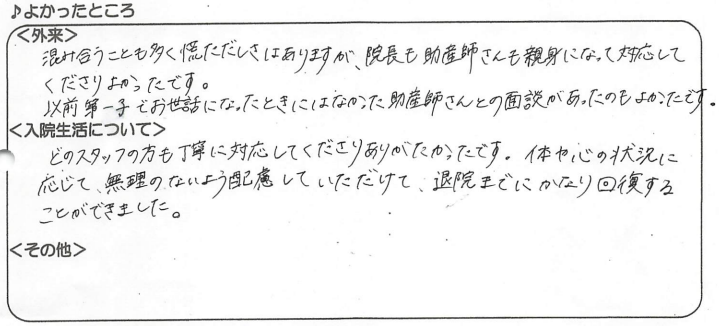 ♪よかったところ
＜外来＞
混み合うことも多く慌ただしさはありますが、院長も助産師さんも親身になって対応して
くださりよかったです。
以前第一子でお世話になったときにはなかった助産師さんとの面談があったのもよかったです。
＜入院生活について＞
どのスタッフの方も丁寧に対応してくださりありがたかったです。体や心の状況に
応じて、無理のないよう配慮していただけて、退院までにかなり回復する
ことができました。
＜その他＞